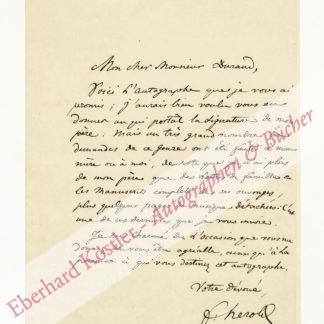 Mon cher Monsieur Durand,
Voici l'autographe que je vous ai
promis ; j'aurais bien voulu vous en
donner un qui portât la signature de mon
père : mais un très grand nombre de
demandes de ce genre ont été faites à ma
mère ou à moi, de sorte que je n'ai plus
de mon père que des lettres de famille et
les Manuscrits complets de ses ouvrages,
plus quelques pages de musique détachées. C'est
une de ces dernières que je vous envoie.
Je suis charmé de l'occasion que vous me
donnez de vous être agréable, ainsi qu'à la
personne à qui vous destinez cet autographe.
Votre dévoué
F. Herold
Eberhard Köstler - Autographen & Bücher